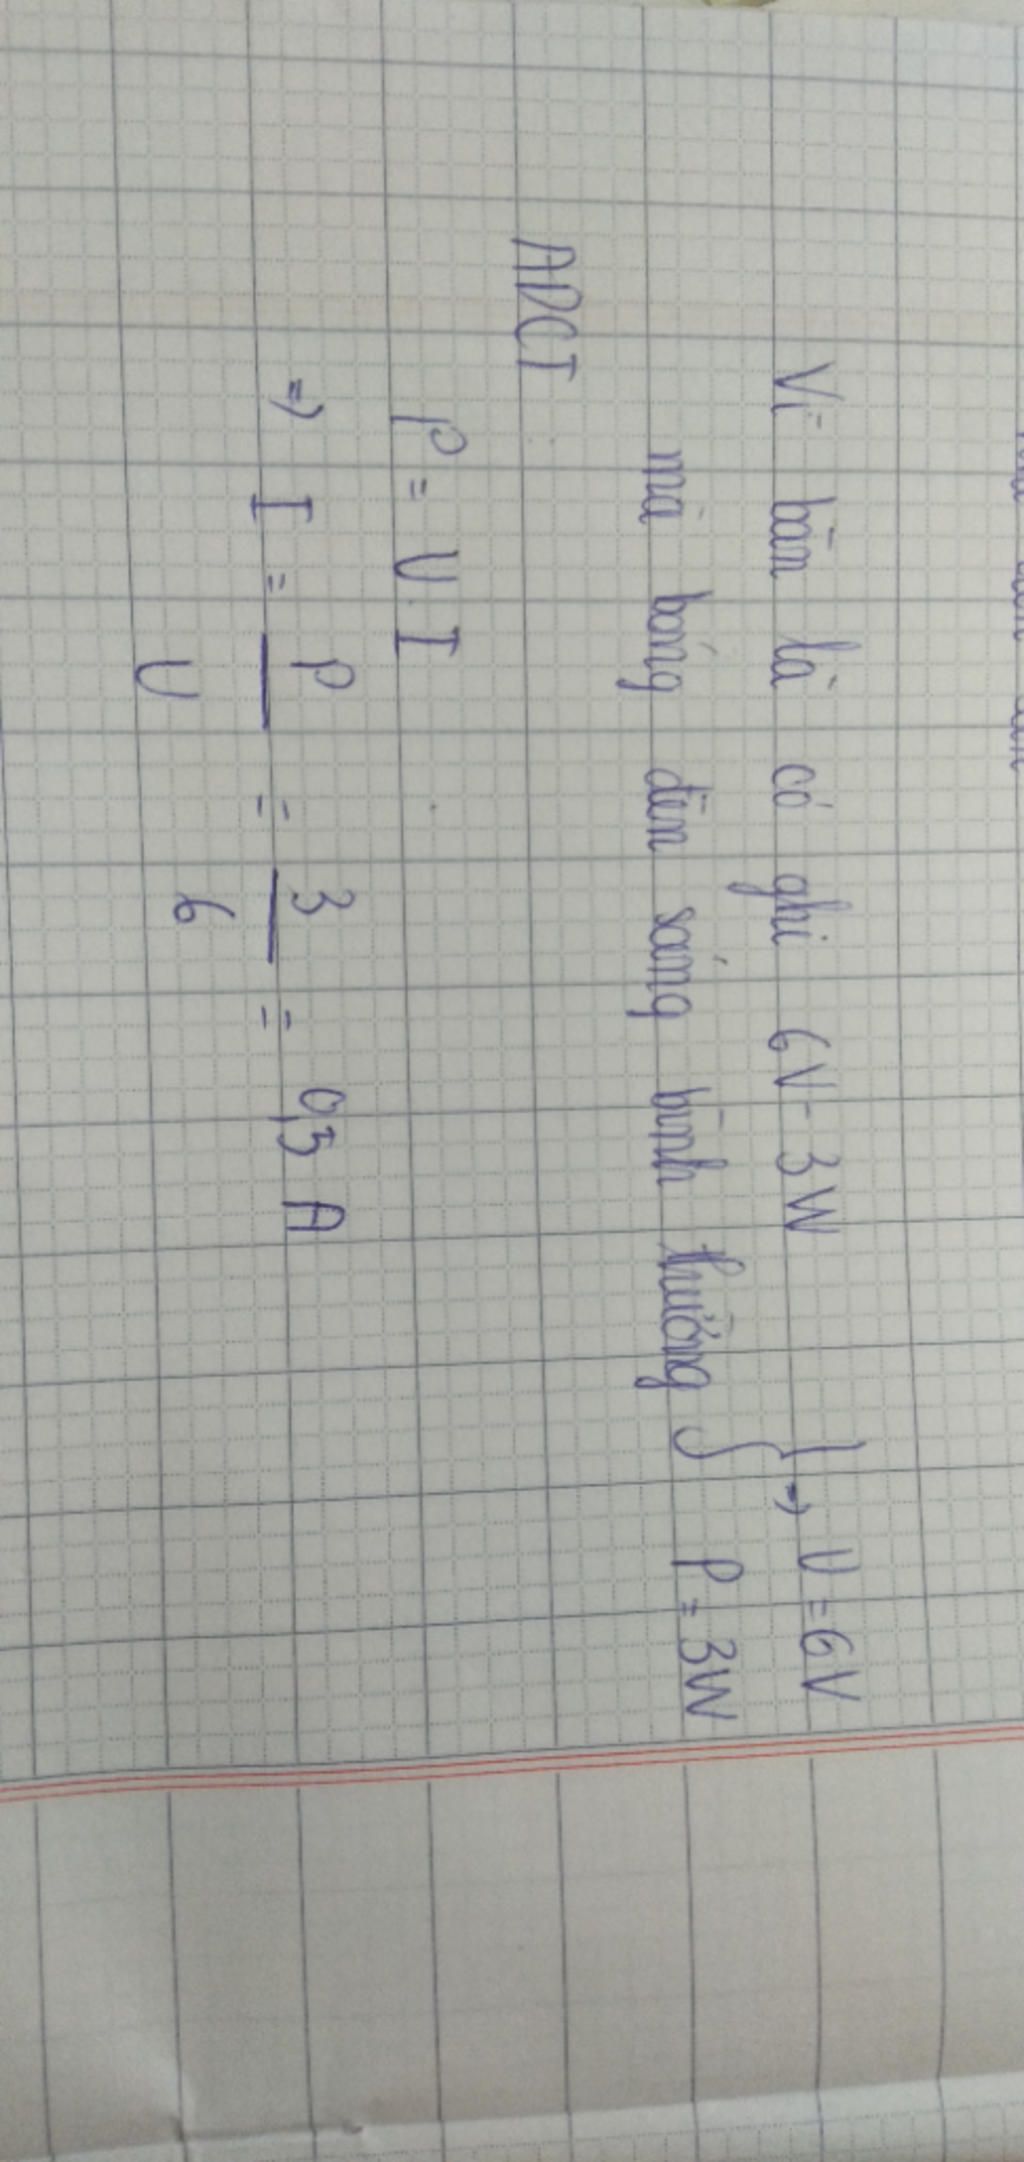 Vì bàn là có ghi 6V - 3W
mà bóng đèn sáng bình thường } => U = 6V
P = 3W
ADCT
P = U.I
=> I = P/U = 3/6 = 0,5 A